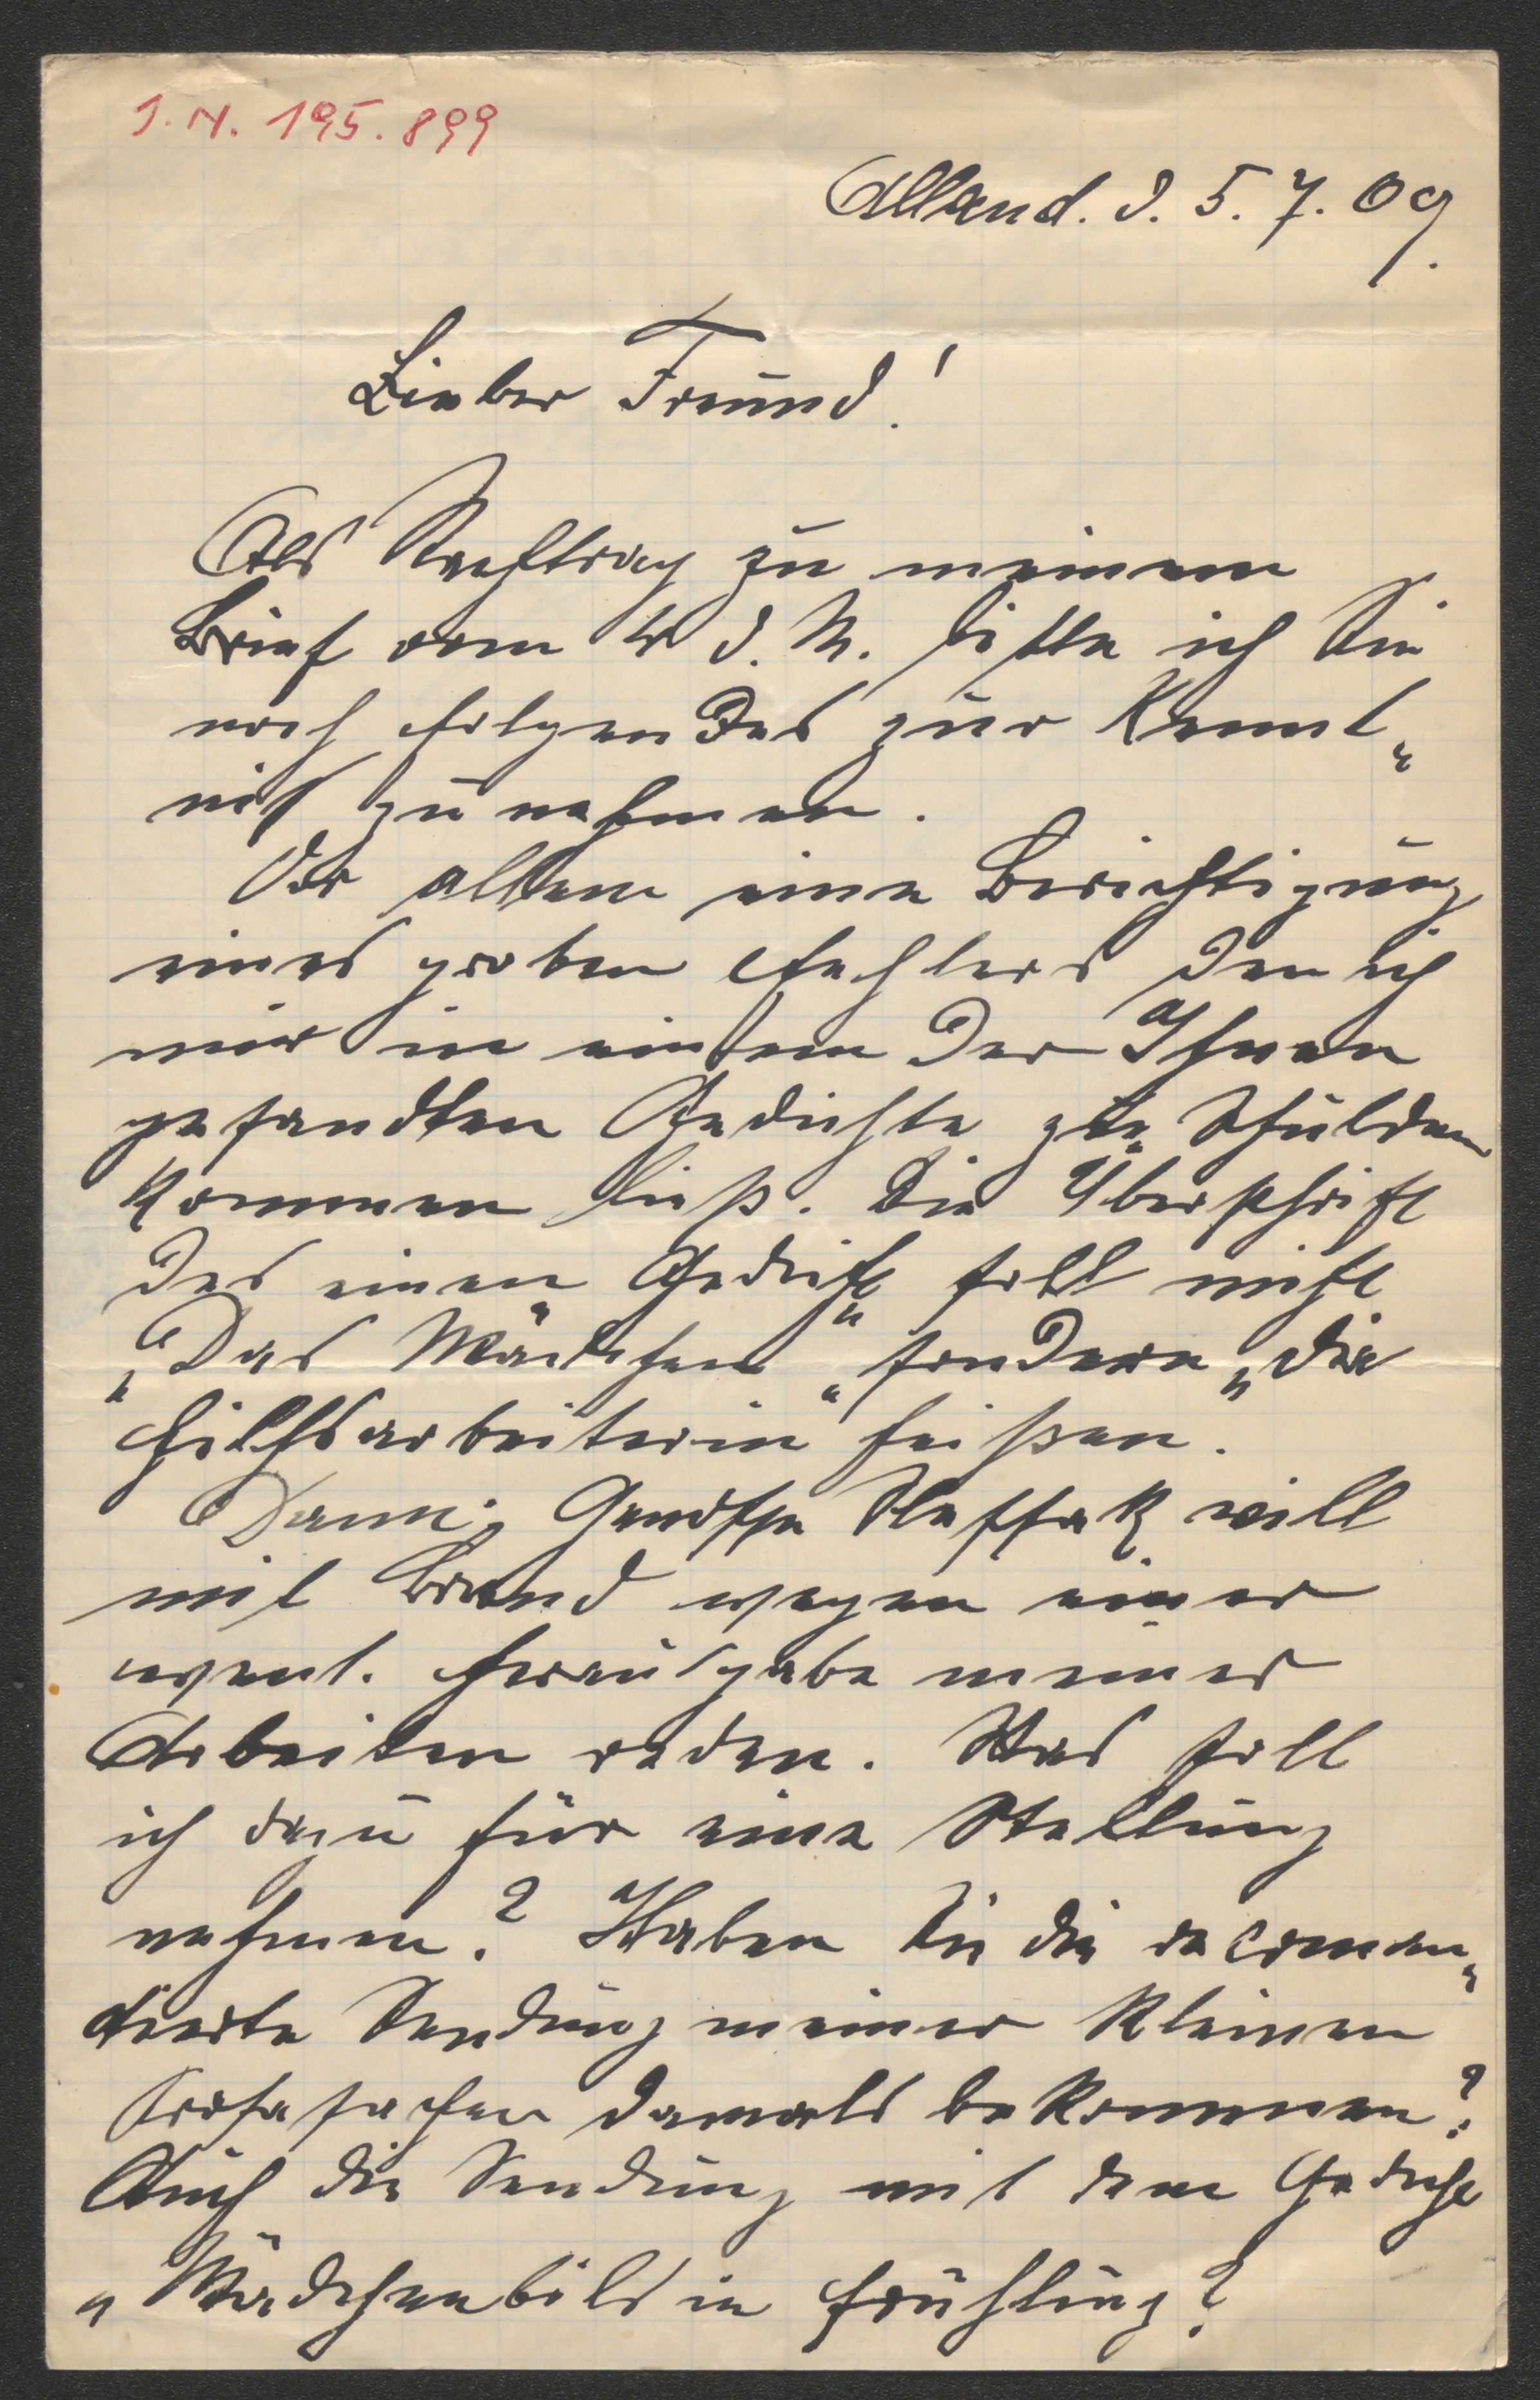 J. N. 195.899
Alland. d. 5. 7. 09.
Lieber Freund!
Als Nachtrag zu meinem
Brief vom 4 d. M. bitte ich Sie
noch folgendes zur Kennt„
nis zu nehmen.
Vor allem eine Berichtigung
eines groben Fehlers den ich
mir in einem der Ihnen
gesandten Gedichte zu Schulden
kommen ließ. Die Überschrift
des einen Gedicht soll nicht
„Das Mädchen“ sondern „die
Hilfsarbeiterin“ heißen.
Dann: Genosse will
mit Brand wegen einer
event. Herausgabe meiner
Arbeiten reden. Was soll
ich dazu für eine Stellung
nehmen? Haben Sie die recoman„
dierte Sendung meiner kleinen
Prosasachen damals bekommen?
Auch die Sendung mit dem Gedicht
„Mädchenbild im Frühling?